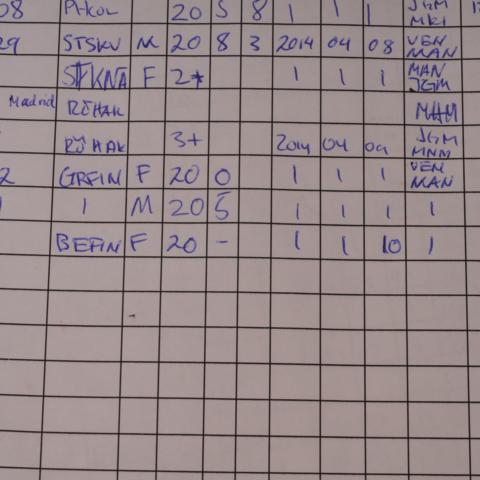 08 20 5 8 1 1 1 JGM MKI
29 STSKV M 20 8 3 2014 04 08 VEN MAN
F 2+ 1 1 1 MAN JGM
Madrid RÖHAK
3+ 2014 04 09 JGM MNM
2 GRFIN F 20 0 1 1 1 VEN MAN
1 M 20 5 1 1 1 1
BEFIN F 20 - 1 1 10 1